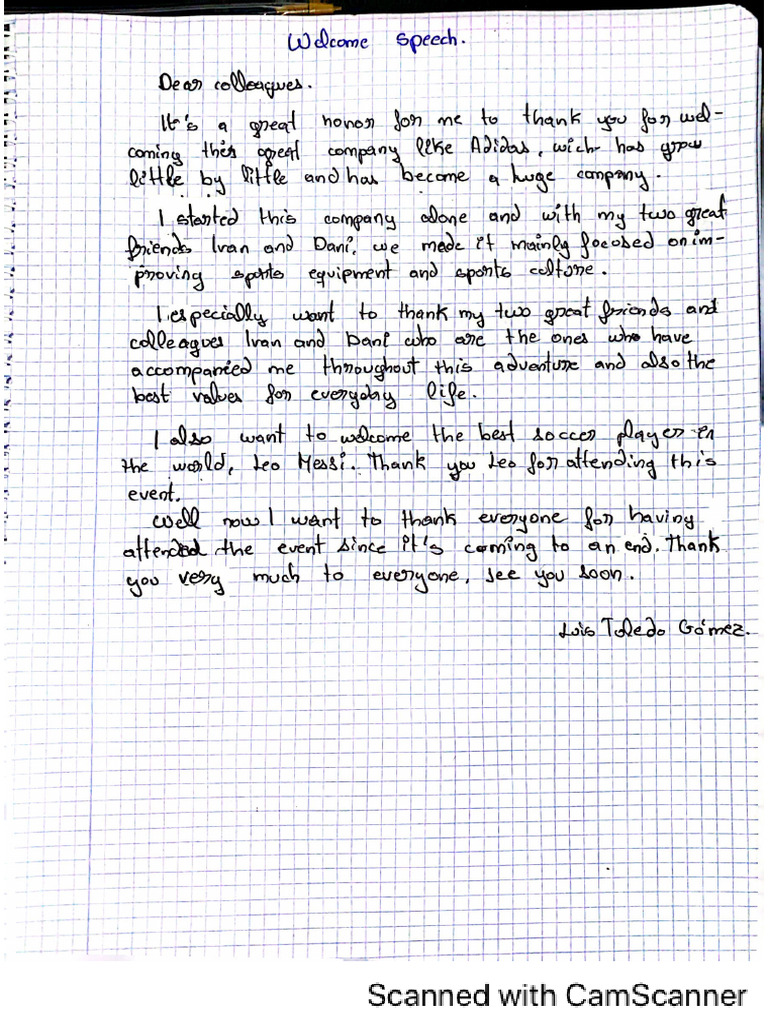 Welcome speech.
Dear colleagues.
It's a great honor for me to thank you for wel-
coming this great company like Adidas, wich has grow
little by little and has become a huge company.
I started this company alone and with my two great
friends Ivan and Dani, we made it mainly focobed on im-
proving sports equipment and sports coltore.
I especially want to thank my two great friends and
colleagues Ivan and Dani who are the ones who have
accompanied me throughout this adventure and also the
best values for everyday life.
I also want to welcome the best soccer player in
the world, Leo Messi. Thank you Leo for attending this
event.
Well now I want to thank everyone for having
attended the event since it's coming to an end. Thank
you very much to everyone, see you soon.
Luis Toledo Gómez.
Scanned with CamScanner